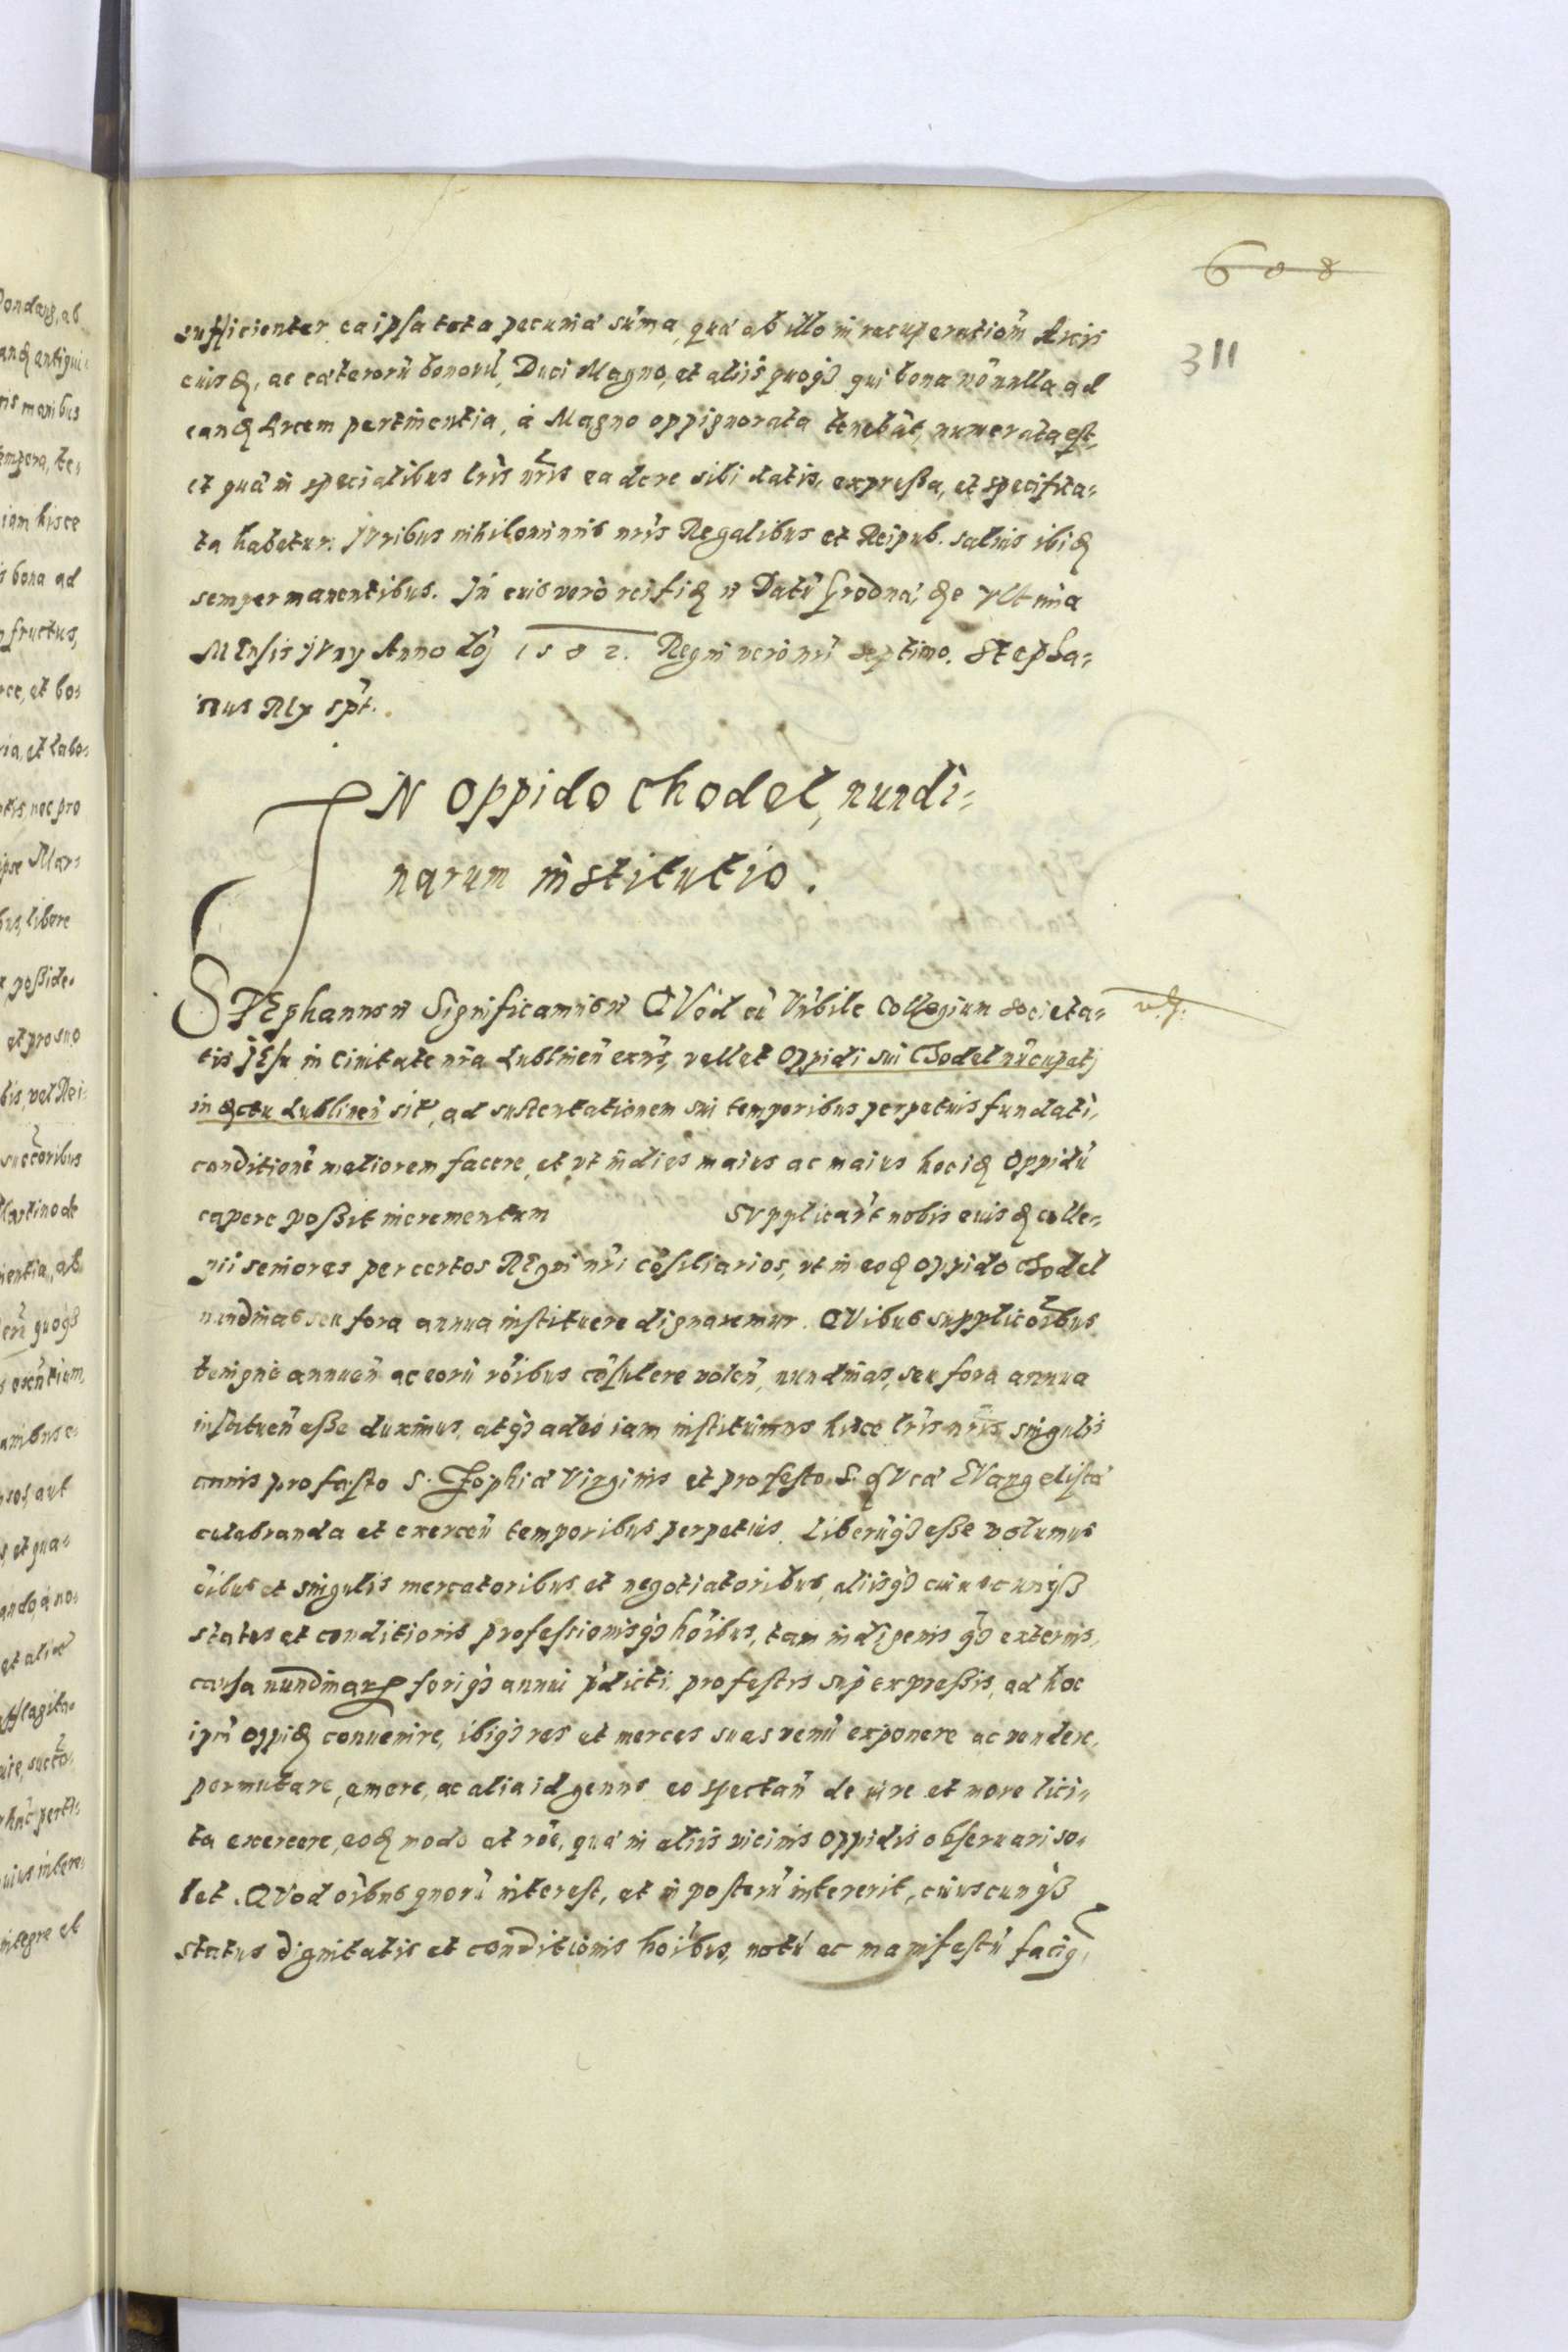 608
311
sufficienter, ea ipsa tota pecuniæ sũma, quæ ab illo in recuperationẽ Arcis
eiusdẽ, ac cæterorũ bonorũ, Duci Magno, et aliis quoq̃ qui bona nõnulla ad
eandẽ Arcem pertinentia, à Magno oppignorata tenebãt, numerata est,
et quæ in specialibus lr̃is nr̃is ea de re sibi datis, expressa, et specifica-
ta habetur. Juribus nihilominus nr̃is Regalibus et Reipub. saluis ibidẽ
semper manentibus. In cuius vero rei fidẽ etc̃ Datũ Grodnæ, die vltima
Mensis Juny Anno Dñj 1582. Regni vero nr̃i septimo. Stepha-
nus Rex spt̃.
IN Oppido Chodel, nundi-
narum institutio.
STEphannus etc̃ Significamus etc̃ QVod cũ Vñbile Collegium Societa-
tis JEsu in Ciuitate nr̃a Lublineñ exñs, vellet Oppidi sui Chodel nũcupatj
in dctu Lublineñ sit̃, ad sustentationem sui temporibus perpetuis fundati,
conditionẽ meliorem facere, et vt indies maius ac maius hoc idẽ Oppidũ
capere possit incrementum SVpplicarũt nobis eiusdẽ colle-
gii seniores per certos REgni nr̃i cõsiliarios, vt in eodẽ oppido Chodel
nundinas seu fora annua instituere dignaremur. QVibus supplicõibus
benigne annueñ ac eorũ rõibus cõsulere voleñ, nundinas, seu fora annua
instituẽñ esse duximus, atq̃ adeò iam instituimus hisce lr̃is nr̃is singulis
annis pro festo S. Zophiæ Virginis et pro festo S. LVcæ EVangelistæ
celebranda et exerceñ temporibus perpetuis. Liberũq̃ esse volumus
oĩbus et singulis mercatoribus et negotiatoribus, aliisq̃ cuiuscunq̃
status et conditionis professionisq̃ hoĩbus, tam indigenis q̃ externis,
causa nundinarũ foriq̃ annui p̃dicti pro festis sup̃ expressis, ad hoc
ipm̃ Oppidẽ conuenire, ibiq̃ res et merces suas venũ exponere ac vendere,
permutare, emere, ac alia id genus eo spectañ de iure et more lici-
ta exercere, eodẽ modo et rõe, quæ in aliis vicinis Oppidis obseruari so-
let. QVod oĩbus quorũ interest, et in posterũ intererit, cuiuscunq̃
status dignitatis et conditionis hoĩbus, notũ ac manifestũ facig̃,